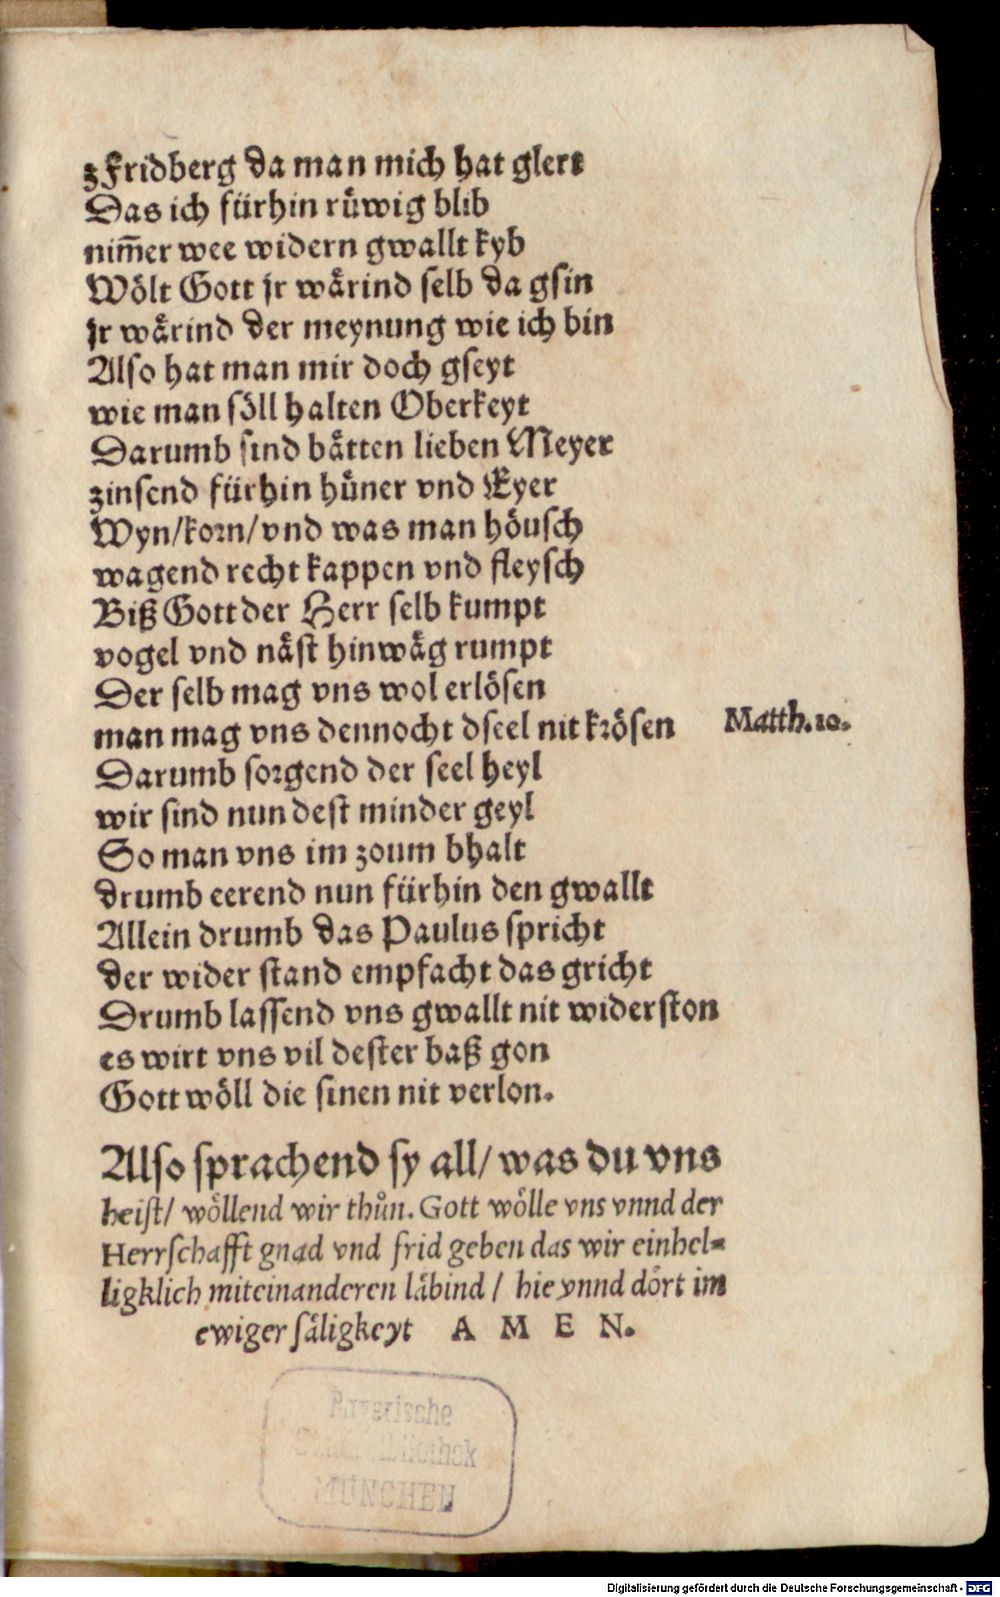 zFridberg da man mich hat glert
Das ich fürhin rüwig blib
nim̄er wee widern gwallt kyb
Wölt Gott jr wårind selb da gsin
jr wårind der meynung wie ich bin
Also hat man mir doch gseyt
wie man söll halten Oberkeyt
Darumb sind båtten lieben Meyer
zinsend fürhin hüner vnd Eyer
Wyn/korn/vnd was man höusch
wagend recht kappen vnd fleysch
Biß Gott der Herr selb kumpt
vogel vnd nåst hinwåg rumpt
Der selb mag vns wol erlösen
man mag vns dennocht dseel nit krösen Matth.10.
Darumb sorgend der seel heyl
wir sind nun dest minder geyl
So man vns im zoum bhalt
drumb eerend nun fürhin den gwallt
Allein drumb das Paulus spricht
der wider stand empfacht das gricht
Drumb lassend vns gwallt nit widerston
es wirt vns vil dester baß gon
Gott wöll die sinen nit verlon.
Also sprachend sy all/ was du vns
heist/ wöllend wir thůn. Gott wölle vns vnnd der
Herrschafft gnad vnd frid geben das wir einhel⸗
ligklich miteinanderen låbind / hie vnnd dört im
ewiger såligkeyt A M E N.
Bayerische
Staatsbibliothek
MÜNCHEN
Digitalisierung gefördert durch die Deutsche Forschungsgemeinschaft - DFG